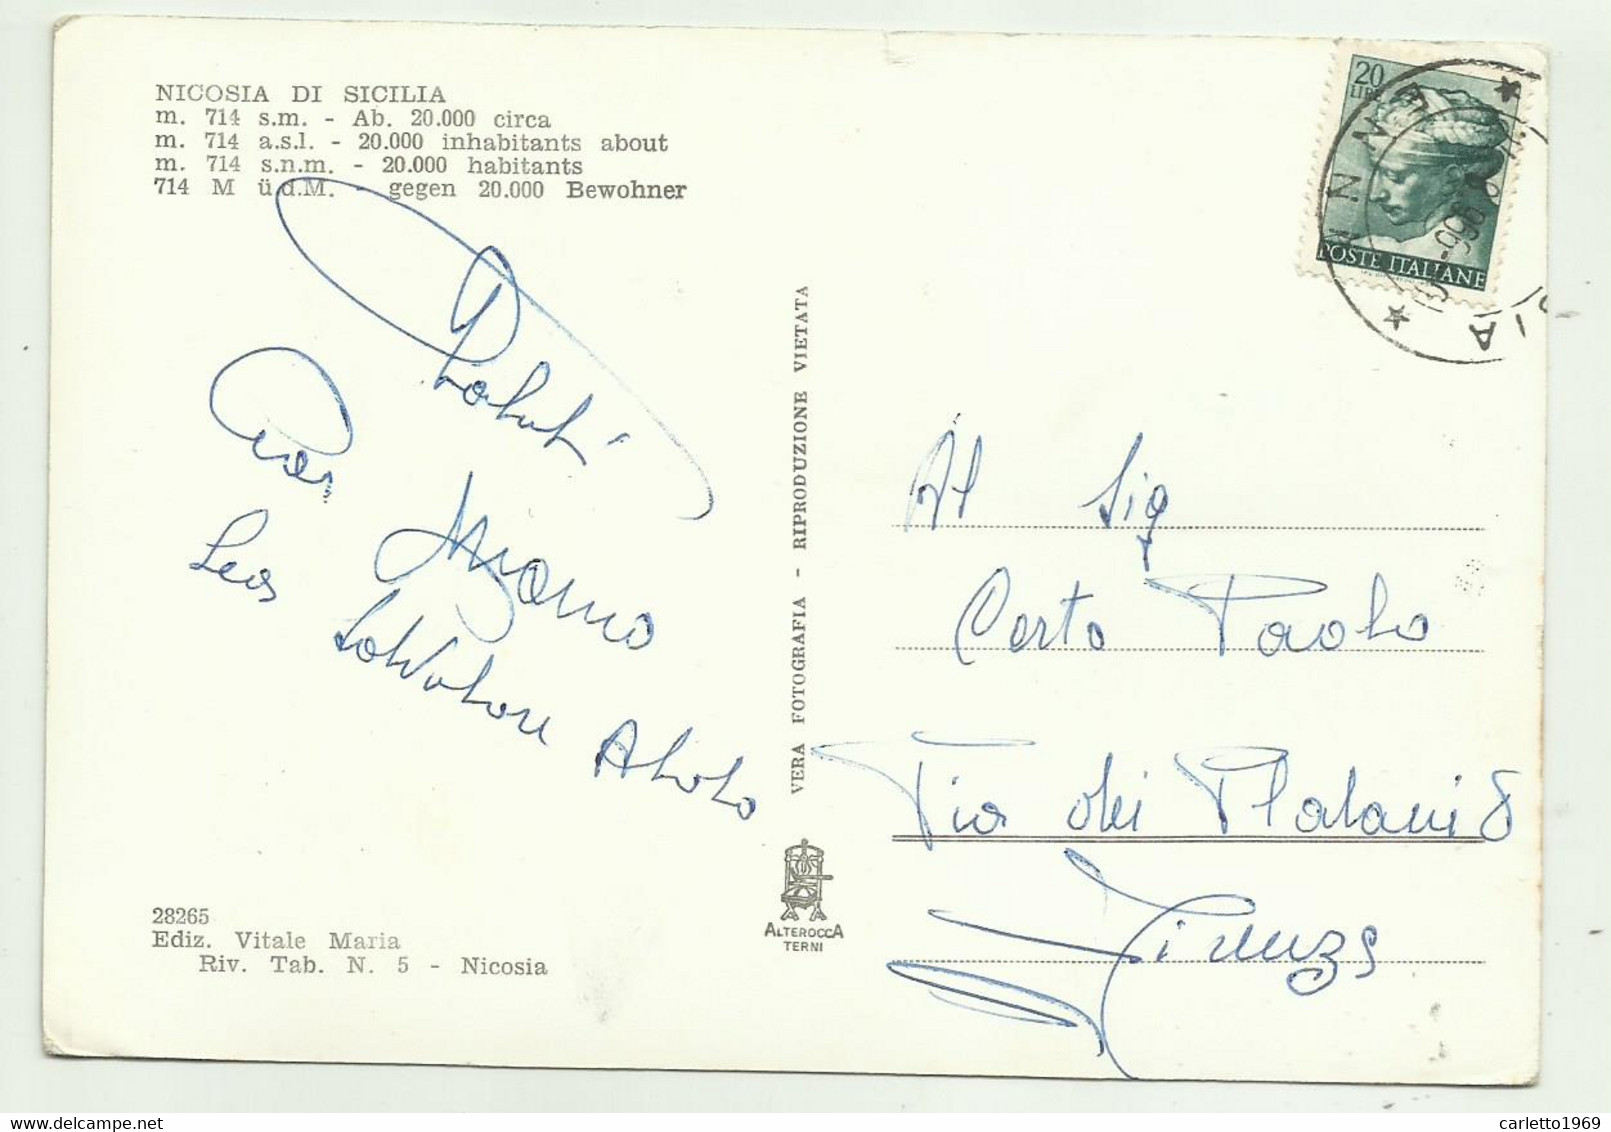 NICOSIA DI SICILIA
m. 714 s.m. - Ab. 20.000 circa
m. 714 a.s.l. - 20.000 inhabitants about
m. 714 s.n.m. - 20.000 habitants
714 M ü.d.M. - gegen 20.000 Bewohner
20
LIRE
POSTE ITALIANE
Saluti
Leo Salvatore
VERA FOTOGRAFIA - RIPRODUZIONE VIETATA
Al Sig
Certo Paolo
Via dei Platani 8
Firenze
28265
Ediz. Vitale Maria
Riv. Tab. N. 5 - Nicosia
ALTEROCCA
TERNI
carletto1969